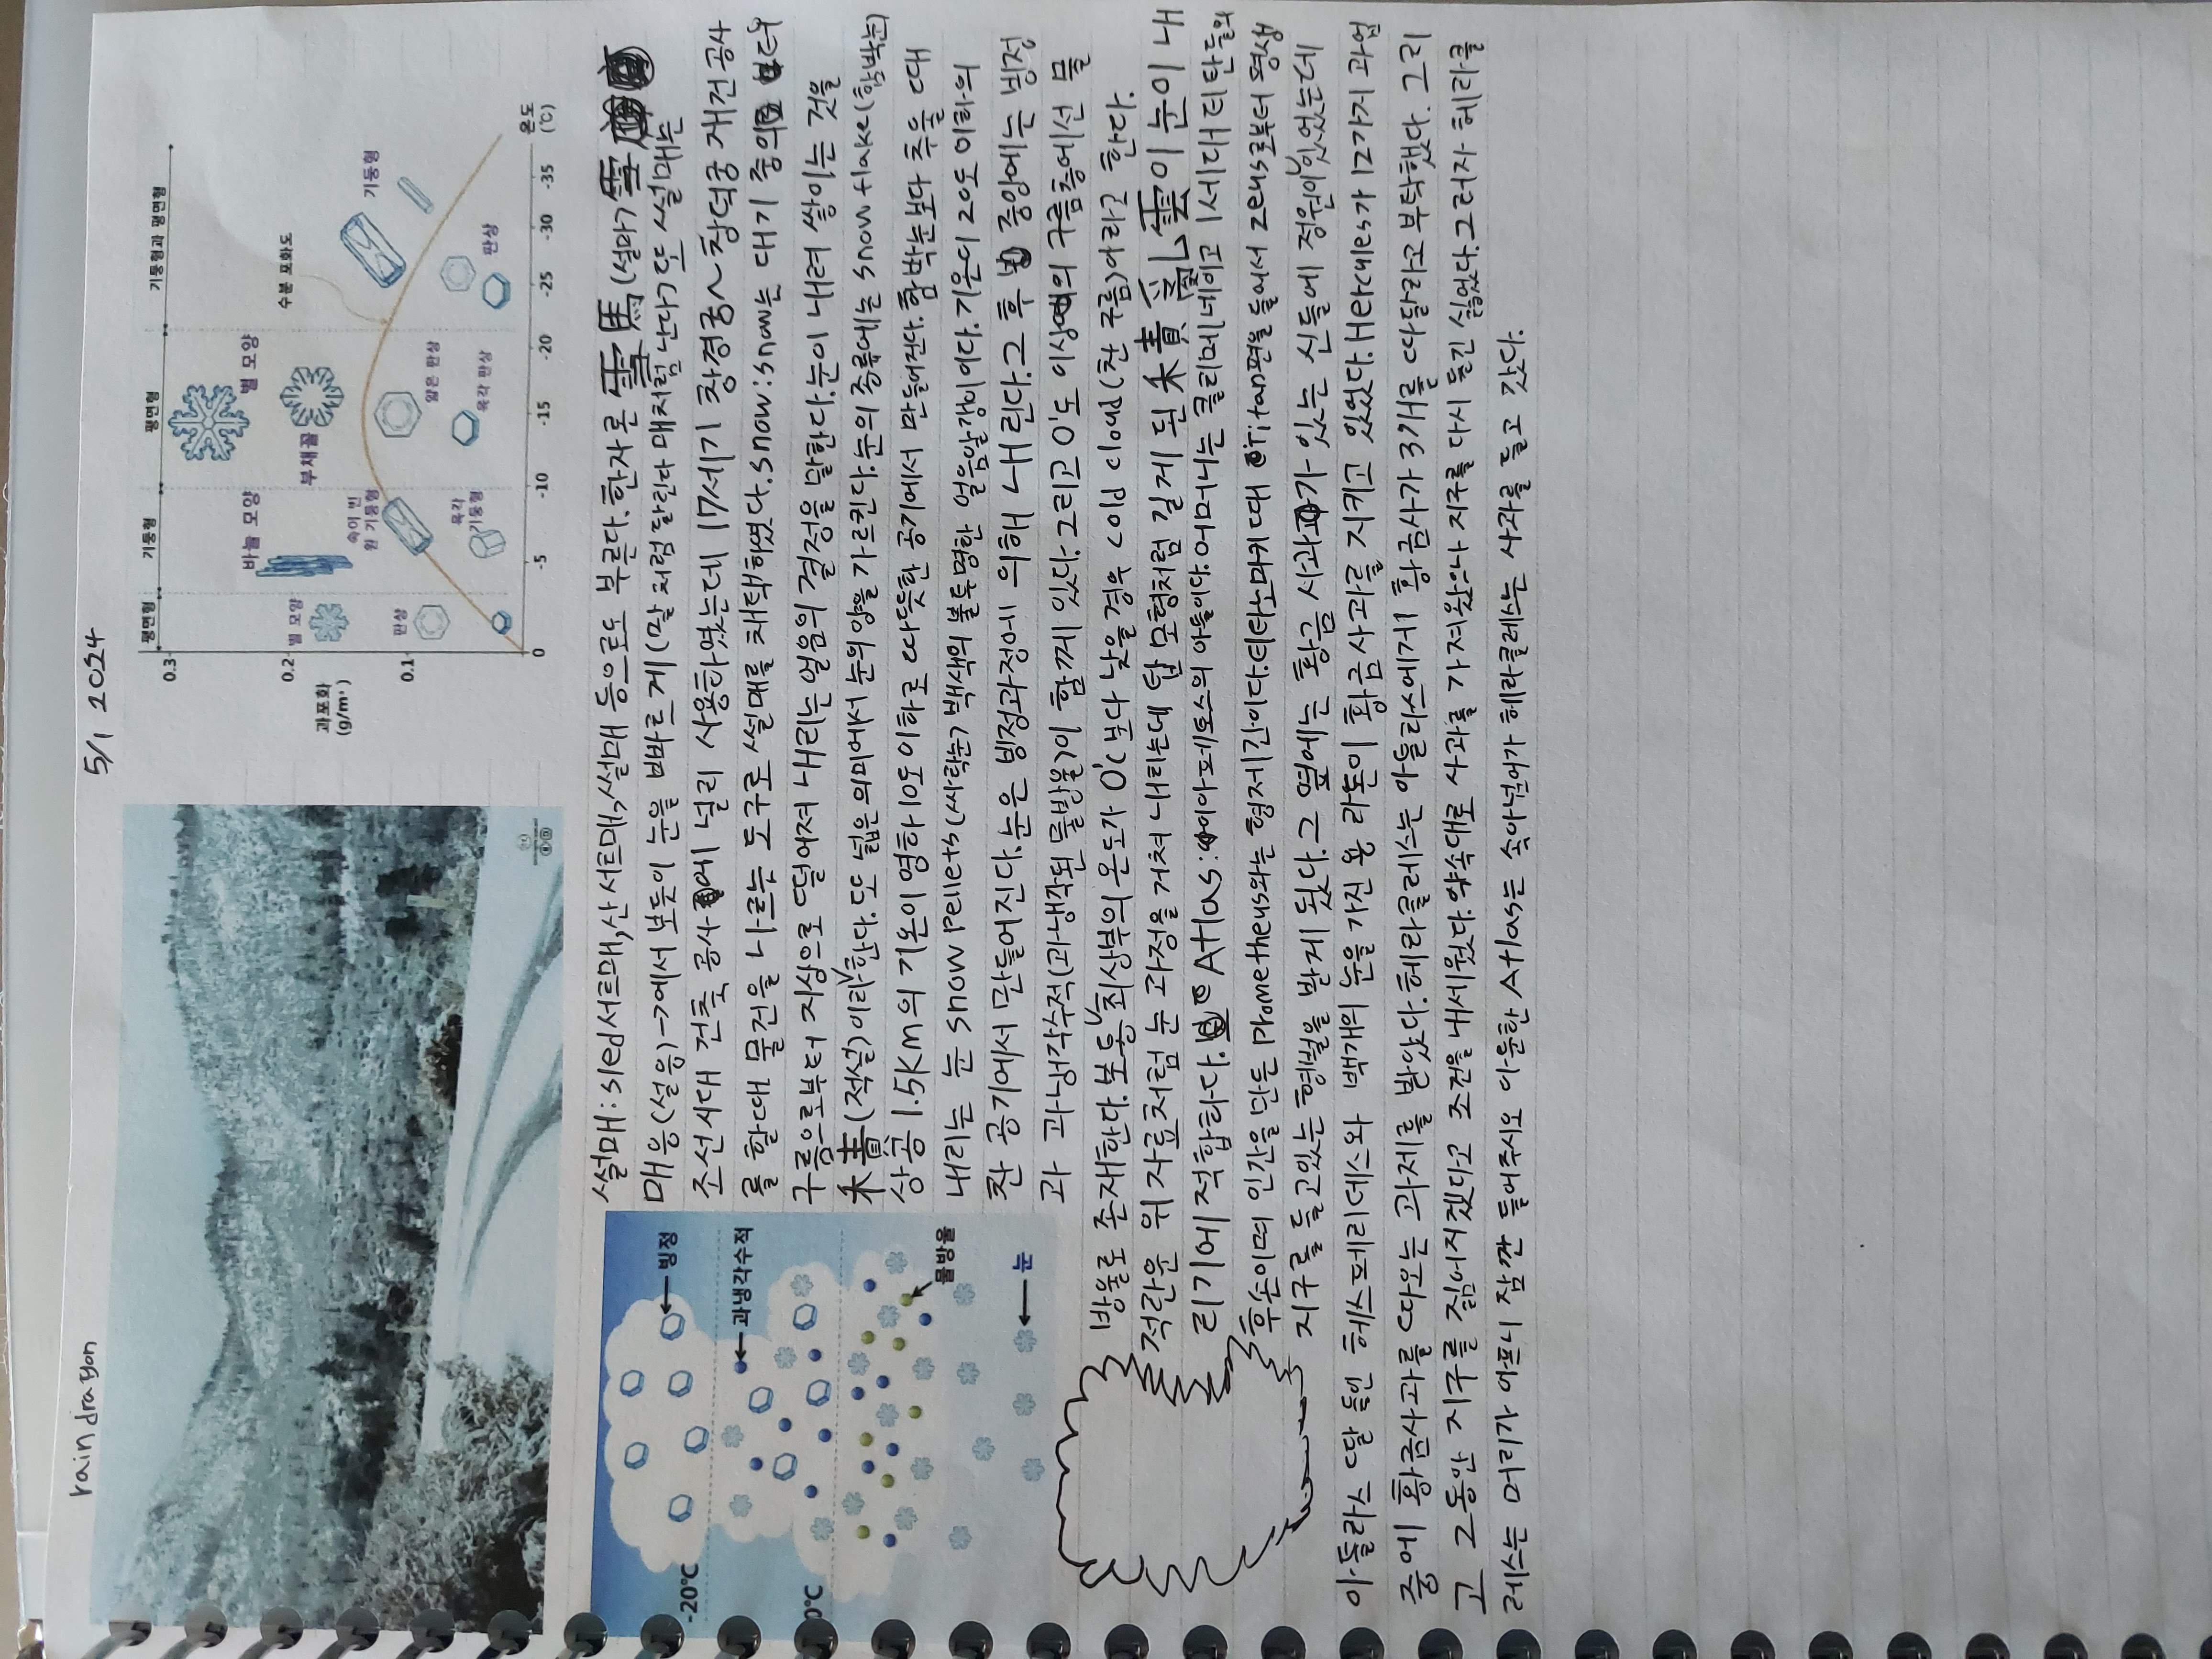 rain dragon
5/1 2024
과포화
(g/m³)
0.3
0.2
0.1
0
-5
-10
-15
-20
-25
-30
-35
온도
(℃)
평면형
기둥형
평면형
기둥형과 평면형
별 모양
판상
바늘 모양
속이 빈
원 기둥형
육각
기둥형
부채꼴
별 모양
얇은 판상
육각 판상
수분 포화도
기둥형
판상
-20℃
0℃
빙정
과냉각수적
물방울
눈
썰매:sled서르매,산서르매,설매 등으로도 부른다.한자론 雪馬(설마)
매응(설응)-7에서 보듯이 눈을 빠르게(말처럼 달린다 매처럼 난다)또 썰매는
조선시대 건축 공사에 널리 사용하였는데 17세기 창경궁~창덕궁 재건공사
를 할대 물건을 나르는 도구로 썰매를 채택하였다.snow:snow는 대기 중의
구름으로부터 지상으로 떨어져 내리는 얼음의 결정을 말한다.눈이 내려 쌓이는 것을
(적설)이라 한다.또 넓은 의미에서 눈의양을 가르킨다.눈의 종류에는 snow flake(함박눈)
상공 1.5KM의 기온이 영하10도이하로 따뜻한 공기에서 만들어진다.함박눈보다 추울 때
내리는 눈 snow Pellets(싸락눈) 백색의 불투명한 얼음알갱이이다.기온이 20도 이하의
찬 공기에서 만들어진다.눈은 빙정과정에 의해 내린다.그 후 중앙에는 빙정
과 과냉각수적(과냉각된 물방울)이 함께 있다.그리고 0'도 이상의 구름층에선 물
방울로 존재한다.보통 최상부의 온도가 0'c보다 낮을경우 cold cloud(찬 구름)이라고 한다.
적란운 위 자료처럼 눈 과정을 거쳐 내리는데 탑 모형처럼 길게 된 이 눈이 내
리기에 적합하다. Atlas:이아페토스의 아들이다.어머니는 클리메네이고 1세대 티탄들의
후손이며 인간을 만든 Prometheus와는 형제간이다.티타노마키 때 Titan편을 들어서 zeus로부터 평생
지구를 들고있는 형벌을 받게 됬다.그 옆에는 황금 사과가 있는 신들에 정원이 있었는데
아틀라스 딸들인 헤스페리데스와 백개의 눈을 가진 용 라돈이 황금사과를 지키고 있었다.Hercules가 12가지 과업
중에 황금사과를 따오는 과제를 받았다.헤라클레스는 아틀라스에게 황금사가 3개를 따달라고 부탁했다.그리
고 그동안 지구를 짊어지겠다고 조건을 내세웠다.약속대로 사과를 가져왔으나 지구를 다시 들긴 싫었다.그러자 헤라클
레스는 머리가 아프니 잠깐 들어주시오 아둔한 Atlas는 속아넘어가 헤라클레스는 사과를 들고 갔다.